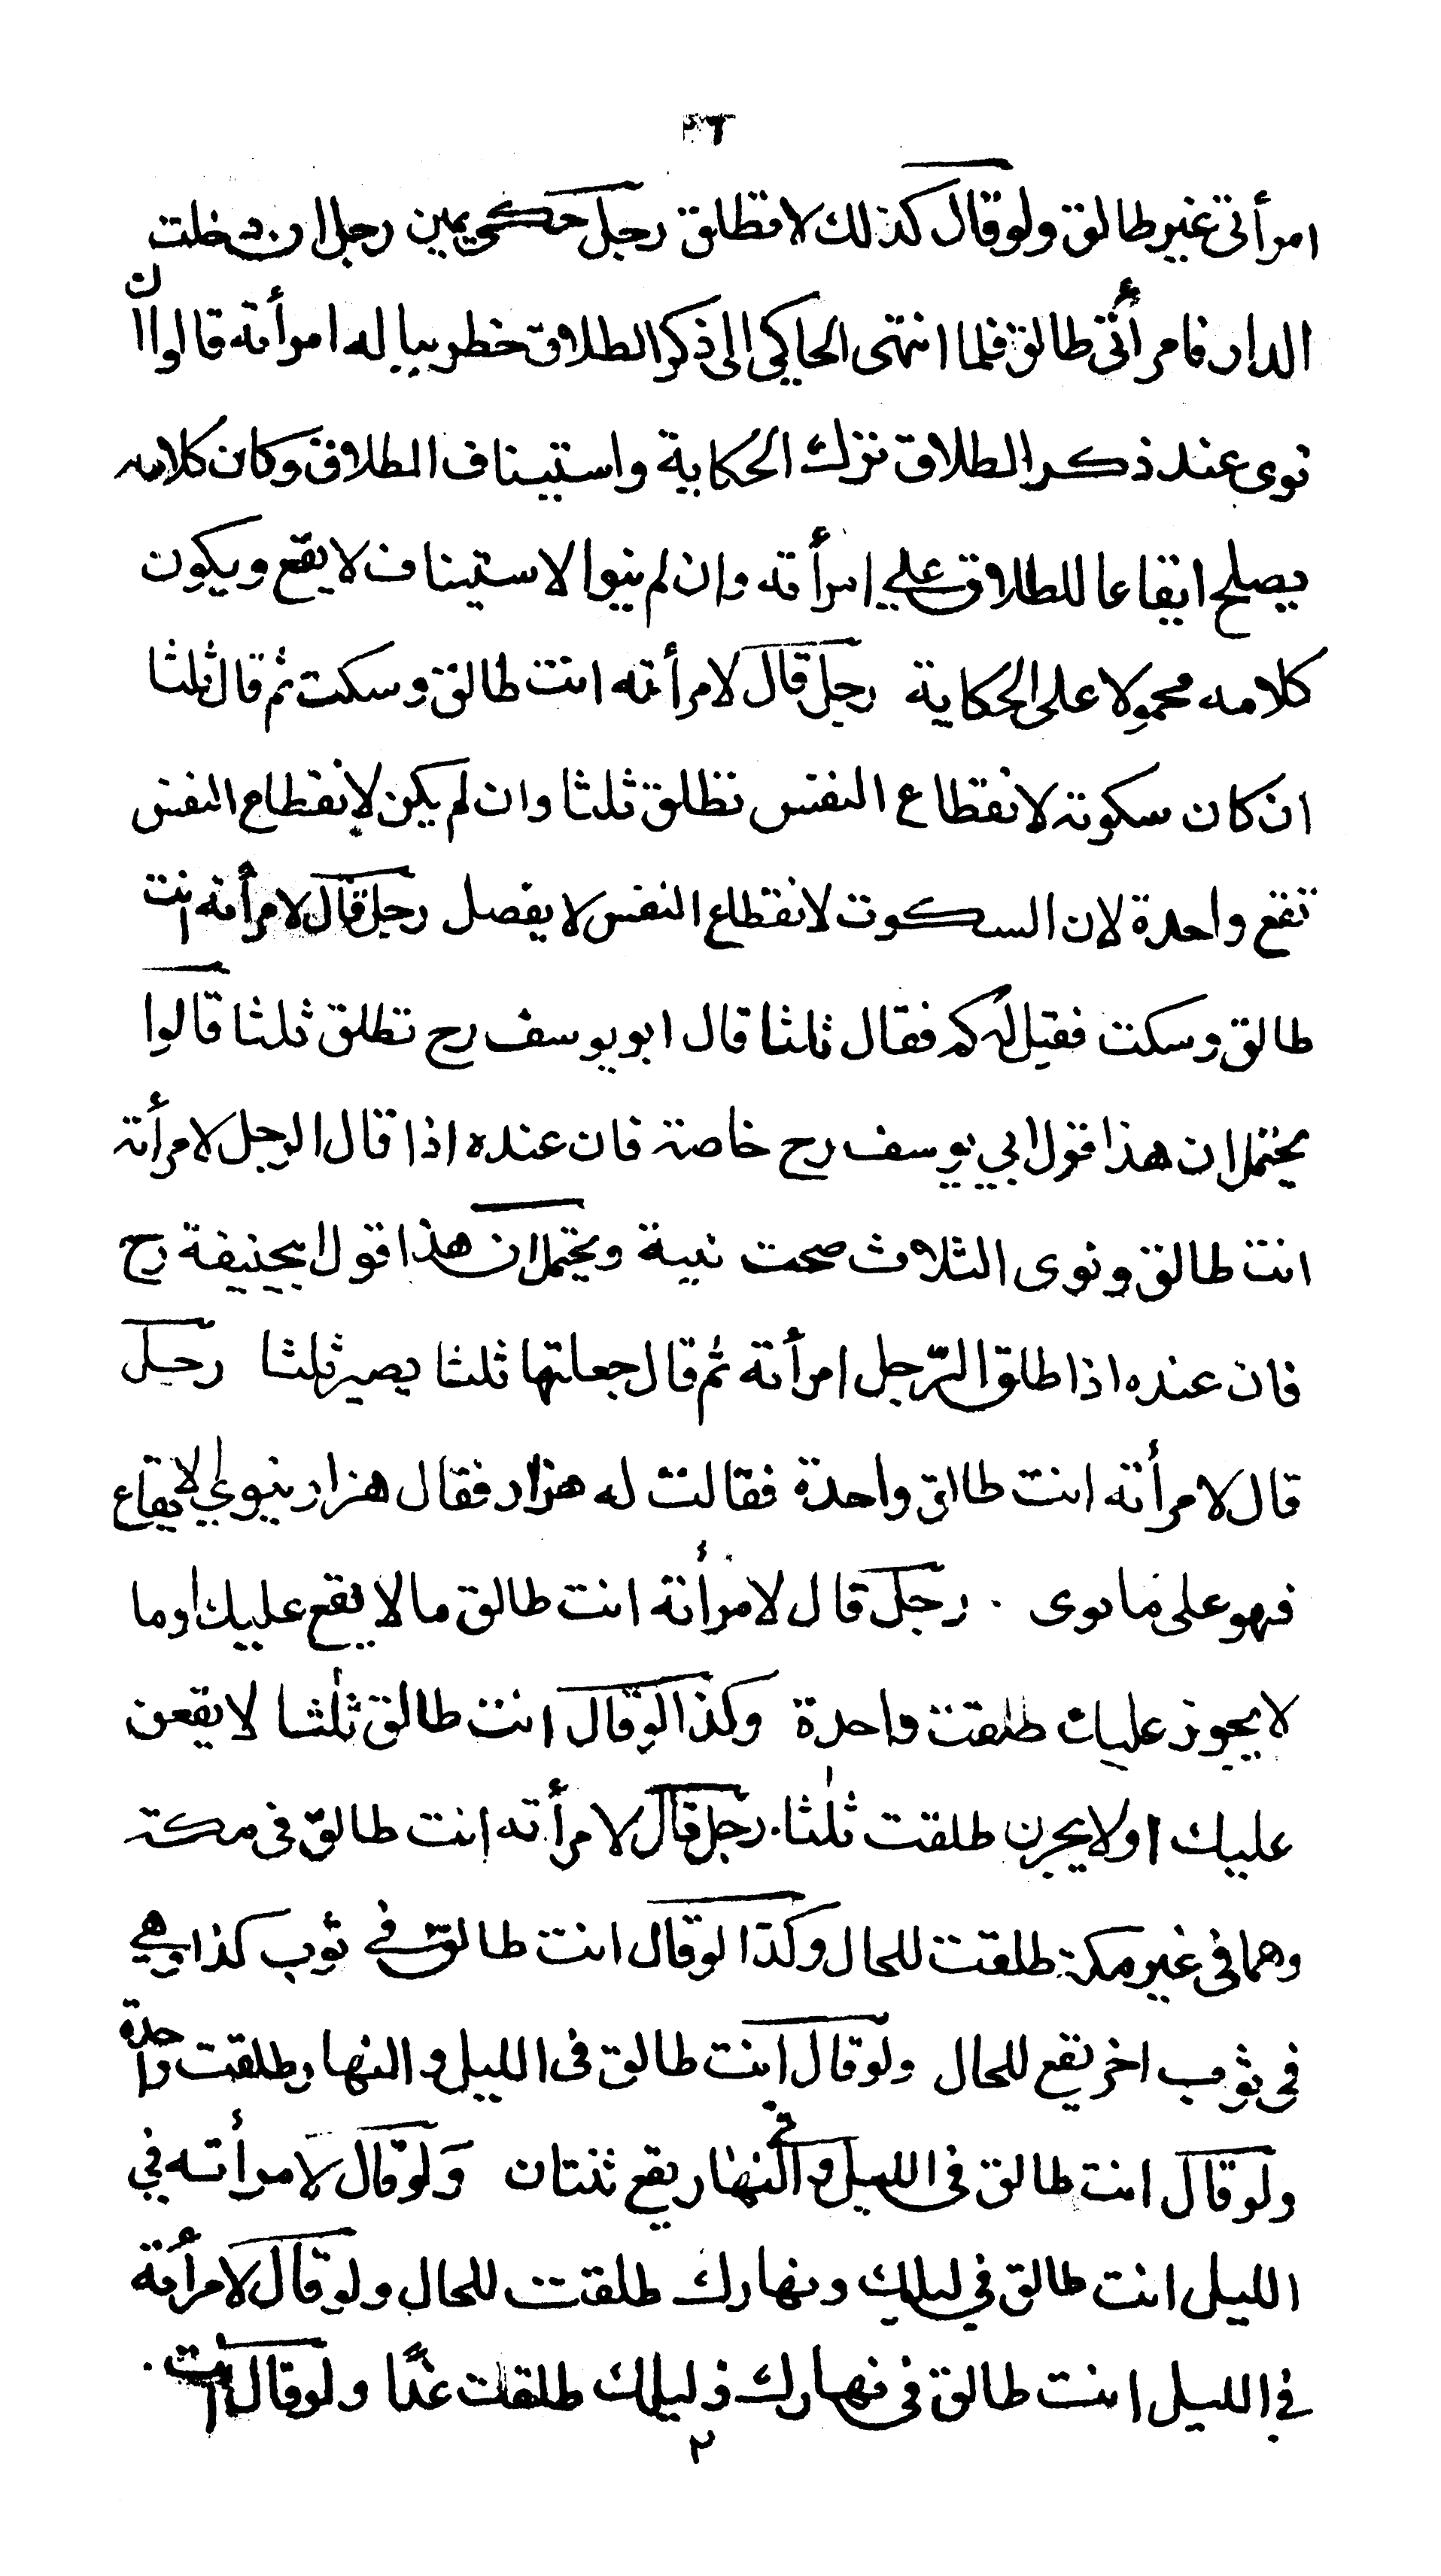 ٢٦
امرأتي غير طالق ولو قال كذلك لا تطلق رجل حكى يمين رجل ان دخلت
الدار فامرأتي طالق فلما انتهى الحاكي الى ذكر الطلاق خطر بباله امرأته قالوا ان
نوى عند ذكر الطلاق ترك الحكاية واستيناف الطلاق وكان كلامه
يصلح ايقاعا للطلاق على امرأته وان لم ينوا لاستيناف لا يقع ويكون
كلامه محمولا على الحكاية رجل قال لامرأته انت طالق وسكت ثم قال ثلثا
ان كان سكوته لانقطاع النفس تطلق ثلثا وان لم يكن لانقطاع النفس
تقع واحدة لان السكوت لانقطاع النفس لا يفصل رجل قال لامرأته انت
طالق وسكت فقيل له كم فقال ثلثا قال ابو يوسف رح تطلق ثلثا قالوا
يحتمل ان هذا قول ابي يوسف رح خاصة فان عنده اذا قال الرجل لامرأته
انت طالق ونوى الثلاث صحت نية ويحتمل ان هذا قول ابيحنيفة رح
فان عنده اذا طلق الرّجل امرأته ثم قال جعلتها ثلثا يصير ثلثا رجل
قال لامرأته انت طالق واحدة فقالت له هزار فقال هزار ينوي لايقاع
فهو على ما نوى . رجل قال لامرأته انت طالق ما لا يقع عليك او ما
لا يجوز عليك طلقت واحدة وكذا لو قال انت طالق ثلثا لا يقعن
عليك او لا يجزن طلقت ثلثا. رجل قال لامرأته انت طالق في مكة
وهما في غير مكة طلقت للحال وكذا لو قال انت طالق في ثوب كذا وهي
في ثوب اخر يقع للحال ولو قال انت طالق في الليل والنهار طلقت واحدة
ولو قال انت طالق في الليل وفي النهار يقع ثنتان ولو قال لامرأته في
الليل انت طالق في ليلك ونهارك طلقت للحال ولو قال لامرأته
في الليل انت طالق في نهارك وليلك طلقت غدًا ولو قال انت
٢